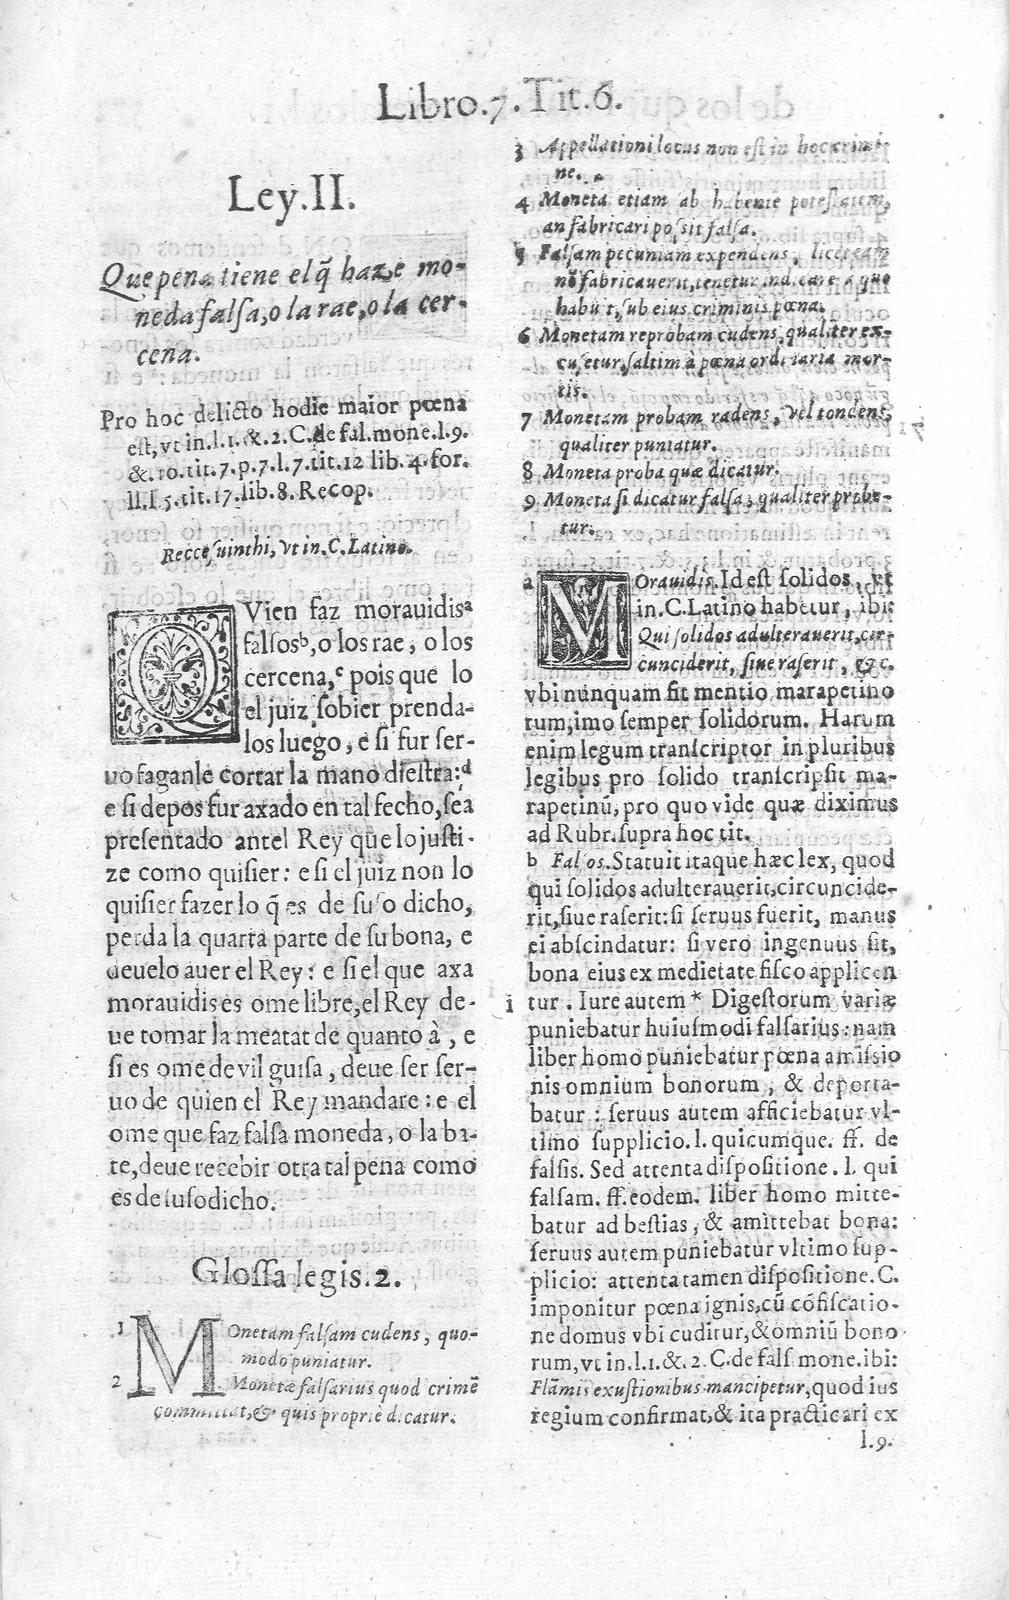 Libro.7.Tit.6.
Ley.II.
Que pena tiene el q̃ haze mo-
neda falsa, o la rae, o la cer-
cena.
Pro hoc delicto hodie maior pœna
est, vt in.l.1.&.2.C.de fal.mone.l.9.
&.10.tit.7.p.7.l.7.tit.12 lib.4.for.
ll.I 5.tit.17.lib.8.Recop.
Reccesuinthi, vt in.C.Latino.
QVien faz morauidisᵃ
falsosᵇ, o los rae, o los
cercena,ᶜ pois que lo
el juiz sobier prenda-
los luego, e si fur ser-
uo faganle cortar la mano diestra:ᵈ
e si depos fur axado en tal fecho, sea
presentado antel Rey que lo justi-
ze como quisier: e si el juiz non lo
quisier fazer lo q̃ es de suso dicho,
perda la quarta parte de su bona, e
deuelo auer el Rey: e si el que axa
morauidis es ome libre, el Rey de-
ue tomar la meatat de quanto à, e
si es ome de vil guisa, deue ser ser-
uo de quien el Rey mandare: e el
ome que faz falsa moneda, o la ba-
te, deue recebir otra tal pena como
es de susodicho.
Glossa legis.2.
1 MOnetam falsam cudens, quo-
modo puniatur.
2 Monetæ falsarius quod crimẽ
committat, & quis proprie dicatur.
3 Appellationi locus non est in hoc crimi-
ne.
4 Moneta etiam ab habente potestatem,
an fabricari possit falsa.
5 Falsam pecuniam expendens, licet eam
nõ fabricauerit, tenetur indicare a quo
habuit, sub eius criminis pœna.
6 Monetam reprobam cudens, qualiter ex-
cusetur, saltim à pœna ordinaria mor-
tis.
7 Monetam probam radens, vel tondens,
qualiter puniatur.
8 Moneta proba quæ dicatur.
9 Moneta si dicatur falsa, qualiter probe-
tur.
a MOrauidis. Id est solidos, vt
in.C.Latino habetur, ibi:
Qui solidos adulterauerit, cir-
cunciderit, siue raserit, &c.
vbi nunquam fit mentio marapetino
rum, imo semper solidorum. Harum
enim legum transcriptor in pluribus
legibus pro solido transcripsit ma-
rapetinũ, pro quo vide quæ diximus
ad Rubr. supra hoc tit.
b Falsos. Statuit itaque hæc lex, quod
qui solidos adulterauerit, circuncide-
rit, siue raserit: si seruus fuerit, manus
ei abscindatur: si vero ingenuus sit,
bona eius ex medietate fisco applicen
1 tur. Iure autem * Digestorum variæ
puniebatur huiusmodi falsarius: nam
liber homo puniebatur pœna amissio
nis omnium bonorum, & deporta-
batur: seruus autem afficiebatur vl-
timo supplicio. l. quicumque. ff. de
falsis. Sed attenta dispositione. l. qui
falsam. ff. eodem. liber homo mitte-
batur ad bestias, & amittebat bona:
seruus autem puniebatur vltimo sup-
plicio: attenta tamen dispositione. C.
imponitur pœna ignis, cũ cõfiscatio-
ne domus vbi cuditur, & omniũ bono
rum, vt in.l.1.&.2.C.de fals mone.ibi:
Flãmis exustionibus mancipetur, quod ius
regium confirmat, & ita practicari ex
l.9.